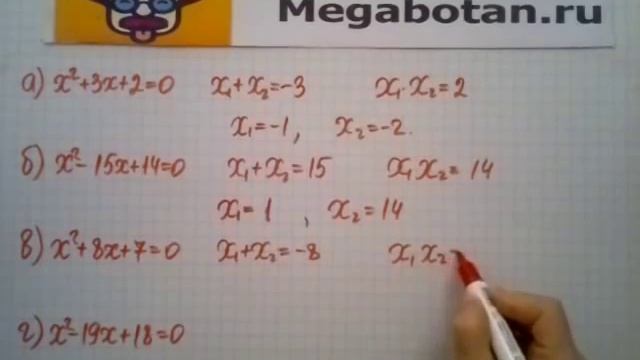 Megabotan.ru
а) x²+3x+2=0 x₁+x₂=-3 x₁·x₂=2
x₁=-1, x₂=-2.
б) x²-15x+14=0 x₁+x₂=15 x₁x₂=14
x₁=1, x₂=14
в) x²+8x+7=0 x₁+x₂=-8 x₁x₂
г) x²-19x+18=0